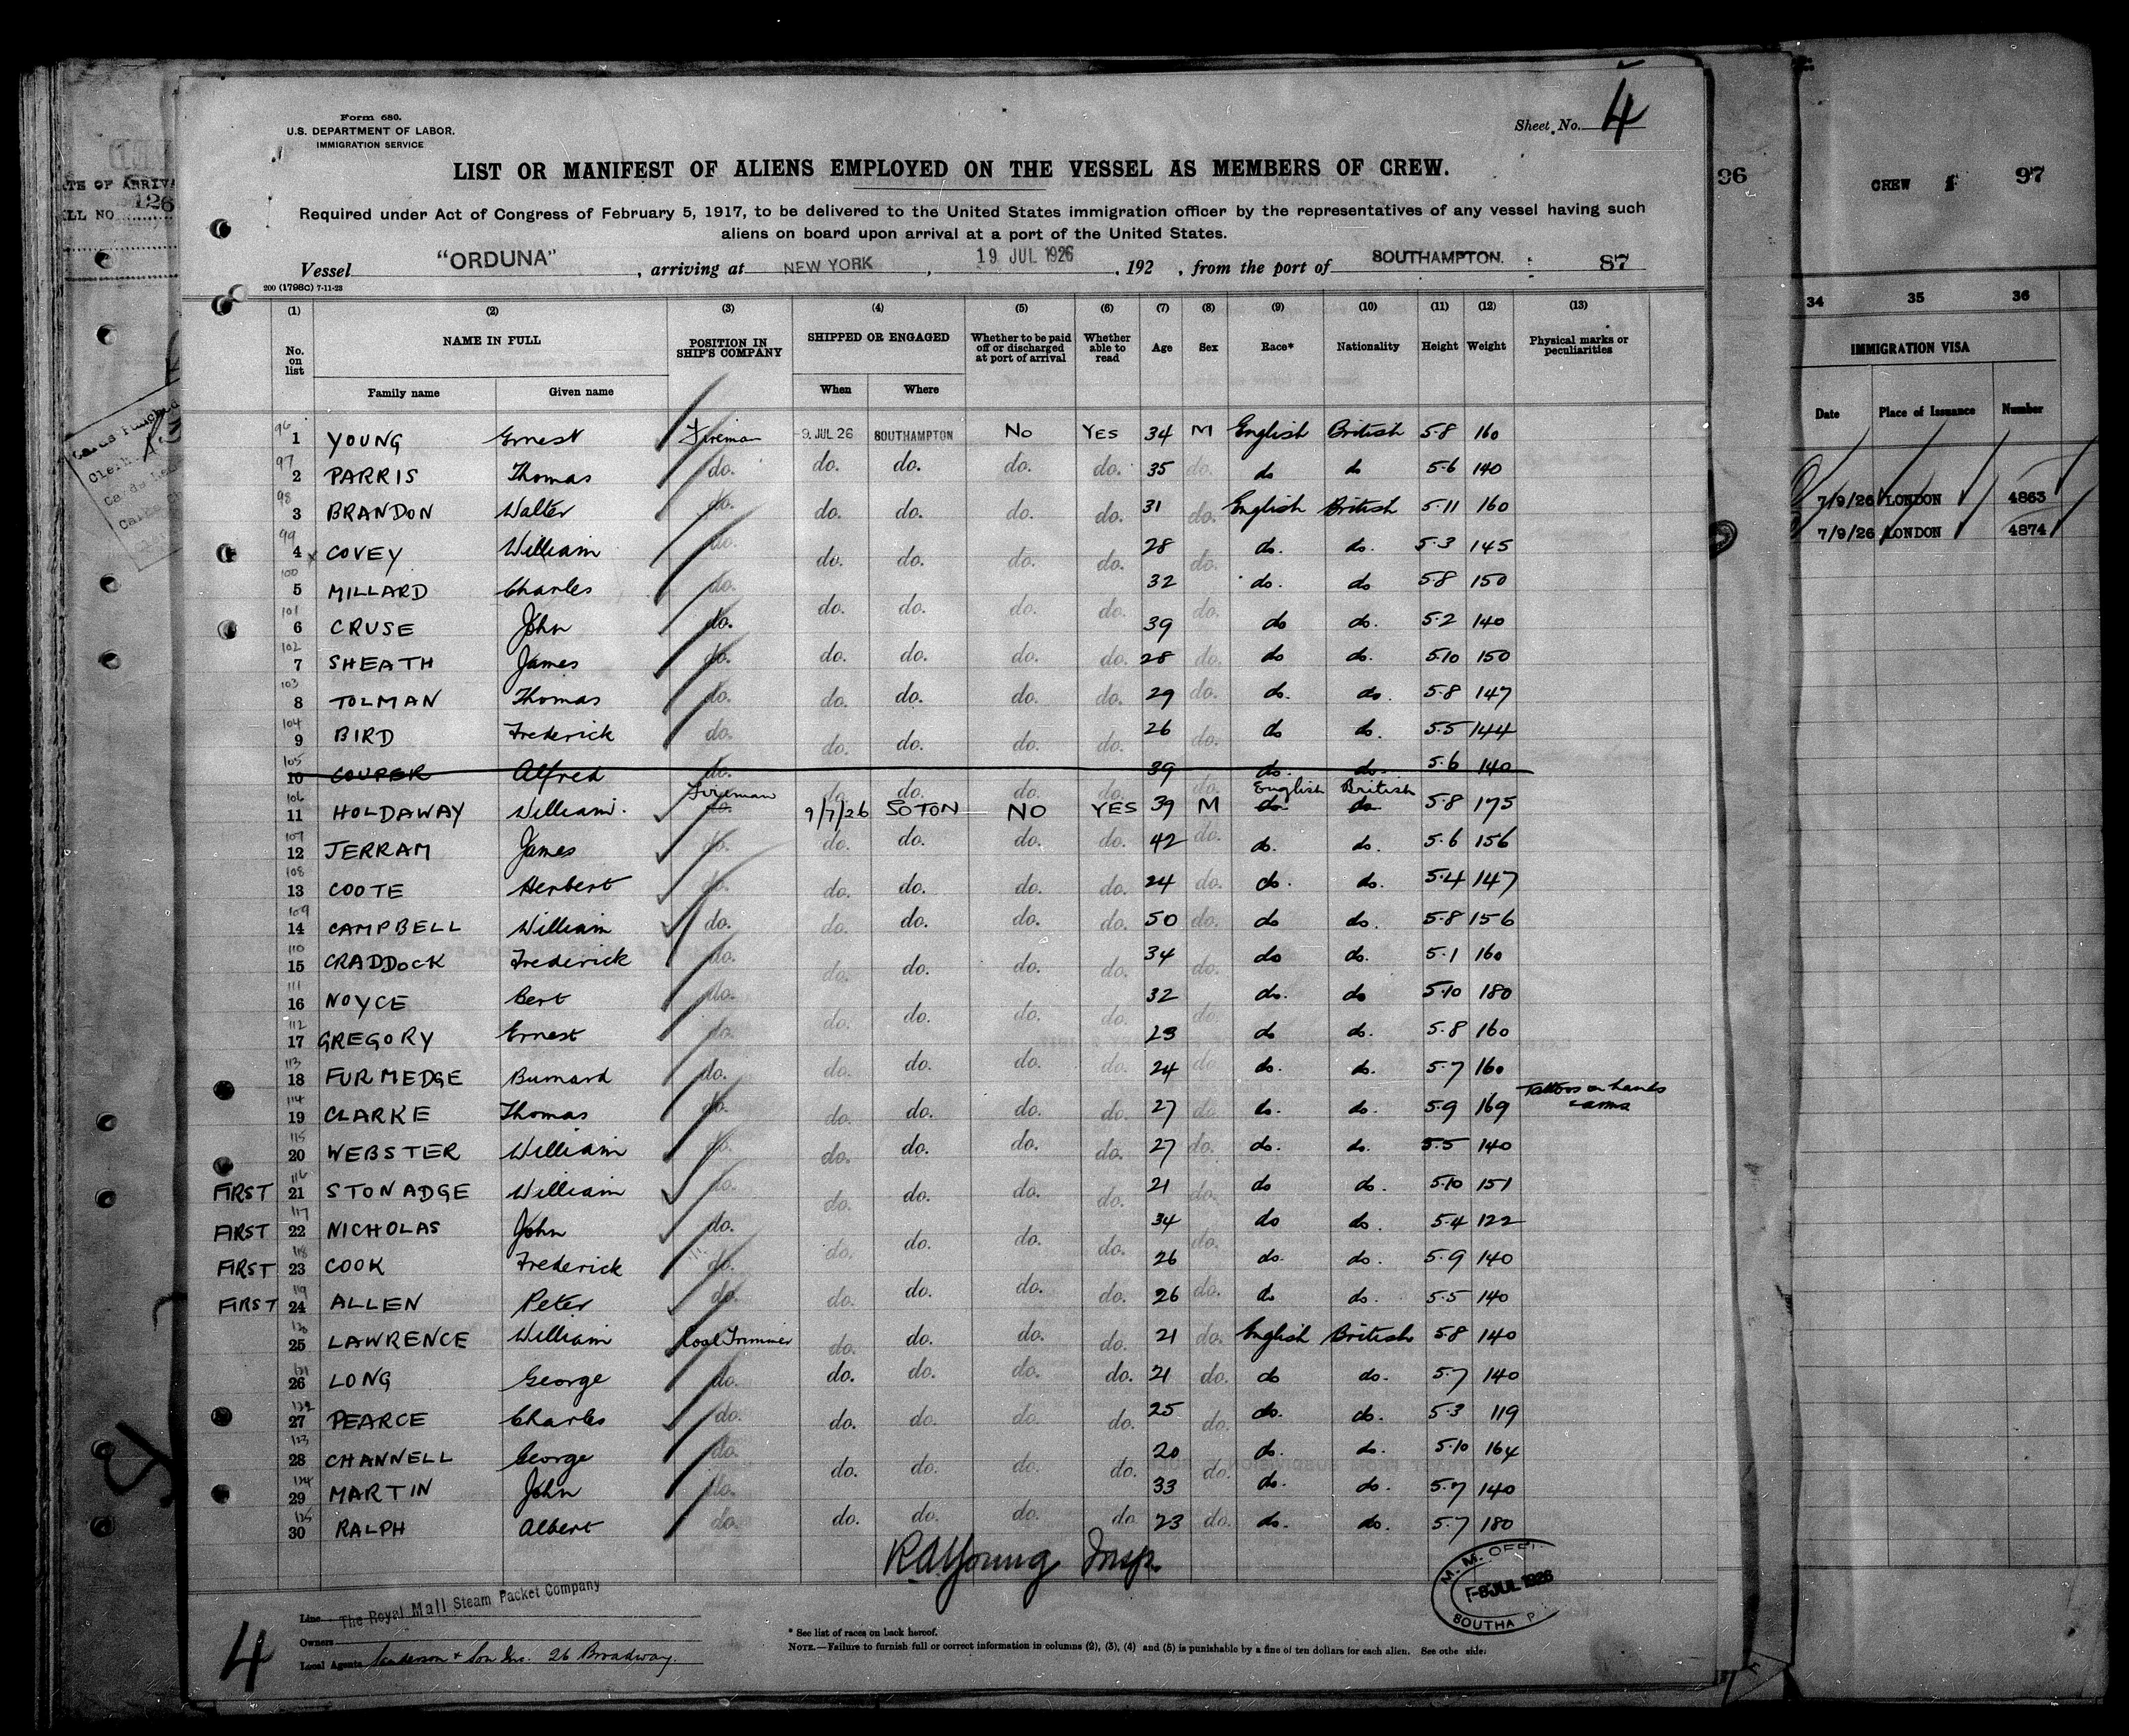 Form 680.
U.S. DEPARTMENT OF LABOR.
IMMIGRATION SERVICE
Sheet No. 4
LIST OR MANIFEST OF ALIENS EMPLOYED ON THE VESSEL AS MEMBERS OF CREW.
Required under Act of Congress of February 5, 1917, to be delivered to the United States immigration officer by the representatives of any vessel having such
aliens on board upon arrival at a port of the United States.
Vessel "ORDUNA", arriving at NEW YORK, 19 JUL 1926, 192 , from the port of SOUTHAMPTON. 87
200 (1798C) 7-11-23
(1) (2) (3) (4) (5) (6) (7) (8) (9) (10) (11) (12) (13)
No. on list NAME IN FULL POSITION IN SHIP'S COMPANY SHIPPED OR ENGAGED Whether to be paid off or discharged at port of arrival Whether able to read Age Sex Race* Nationality Height Weight Physical marks or peculiarities
Family name Given name When Where
96 1 YOUNG Ernest Fireman 9 JUL 26 SOUTHAMPTON No YES 34 M English British 5·8 160
97 2 PARRIS Thomas do. do. do. do. do. 35 do. do do 5·6 140
98 3 BRANDON Walter do. do. do. do. do. 31 do. English British 5·11 160
99 4 x COVEY William do. do. do. do. do. 28 do. do. do. 5·3 145
100 5 MILLARD Charles do. do. do. do. do. 32 do. do. do 5·8 150
101 6 CRUSE John do. do. do. do. do. 39 do. do do. 5·2 140
102 7 SHEATH James do. do. do. do. do. 28 do. do do. 5·10 150
103 8 TOLMAN Thomas do. do. do. do. do. 29 do. do. do. 5·8 147
104 9 BIRD Frederick do. do. do. do. do. 26 do. do do. 5·5 144
105 10 COUPER Alfred do. do. do. do. do. 39 do. do. do. 5·6 140
106 11 HOLDAWAY William. Fireman do. 9/7/26 SOTON NO YES 39 M English do. British do. 5·8 175
107 12 JERRAM James do. do. do. do. do. 42 do. do. do. 5·6 156
108 13 COOTE Herbert do. do. do. do. do. 24 do. do. do. 5·4 147
109 14 CAMPBELL William do. do. do. do. do. 50 do. do do. 5·8 156
110 15 CRADDOCK Frederick do. do. do. do. do. 34 do. do do. 5·1 160
111 16 NOYCE Bert do. do. do. do. do. 32 do. do. do 5·10 180
112 17 GREGORY Ernest do. do. do. do. do. 23 do. do do. 5·8 160
113 18 FURMEDGE Burnard do. do. do. do. do. 24 do. do. do. 5·7 160
114 19 CLARKE Thomas do. do. do. do. do. 27 do. do. do. 5·9 169 Tattoos on hands & arms
115 20 WEBSTER William do. do. do. do. do. 27 do. do. do. 5·5 140
FIRST 116 21 STONADGE William do. do. do. do. do. 21 do. do do. 5·10 151
FIRST 117 22 NICHOLAS John do. do. do. do. do. 34 do. do do. 5·4 122
FIRST 118 23 COOK Frederick do. do. do. do. do. 26 do. do. 5·9 140
FIRST 119 24 ALLEN Peter do. do. do. do. do. 26 do. do do. 5·5 140
120 25 LAWRENCE William Coal Trimmer do. do. do. do. 21 do. English British 5·8 140
121 26 LONG George do. do. do. do. do. 21 do. do do. 5·7 140
122 27 PEARCE Charles do. do. do. do. do. 25 do. do. do. 5·3 119
123 28 CHANNELL George do. do. do. do. do. 20 do. do. do. 5·10 164
124 29 MARTIN John do. 33 do. do. 5·7 140
125 30 RALPH Albert do. do. do. do. do 23 do. do. do. 5·7 180
R A Young Insp.
M. M. OFFI
-8 JUL 1926
SOUTHA P
Line The Royal Mail Steam Packet Company
Owners
Local Agents Sanderson & Son Inc. 26 Broadway.
4
* See list of races on back hereof.
NOTE.—Failure to furnish full or correct information in columns (2), (3), (4) and (5) is punishable by a fine of ten dollars for each alien. See othe side.
96
CREW
97
34 35 36
IMMIGRATION VISA
Date Place of Issuance Number
7/9/26 LONDON 4863
7/9/26 LONDON 4874
ATE OF ARRIVA
LL NO 126